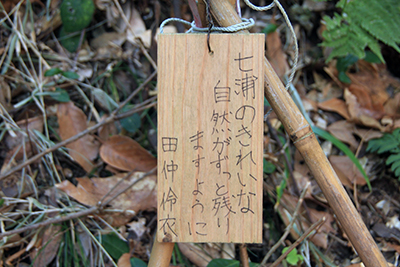 七浦のきれいな
自然がずっと残り
ますように
田仲伶衣